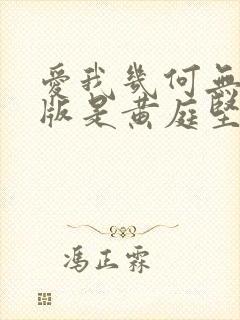 愛我幾何無
版是黄庭堅
馮正霖